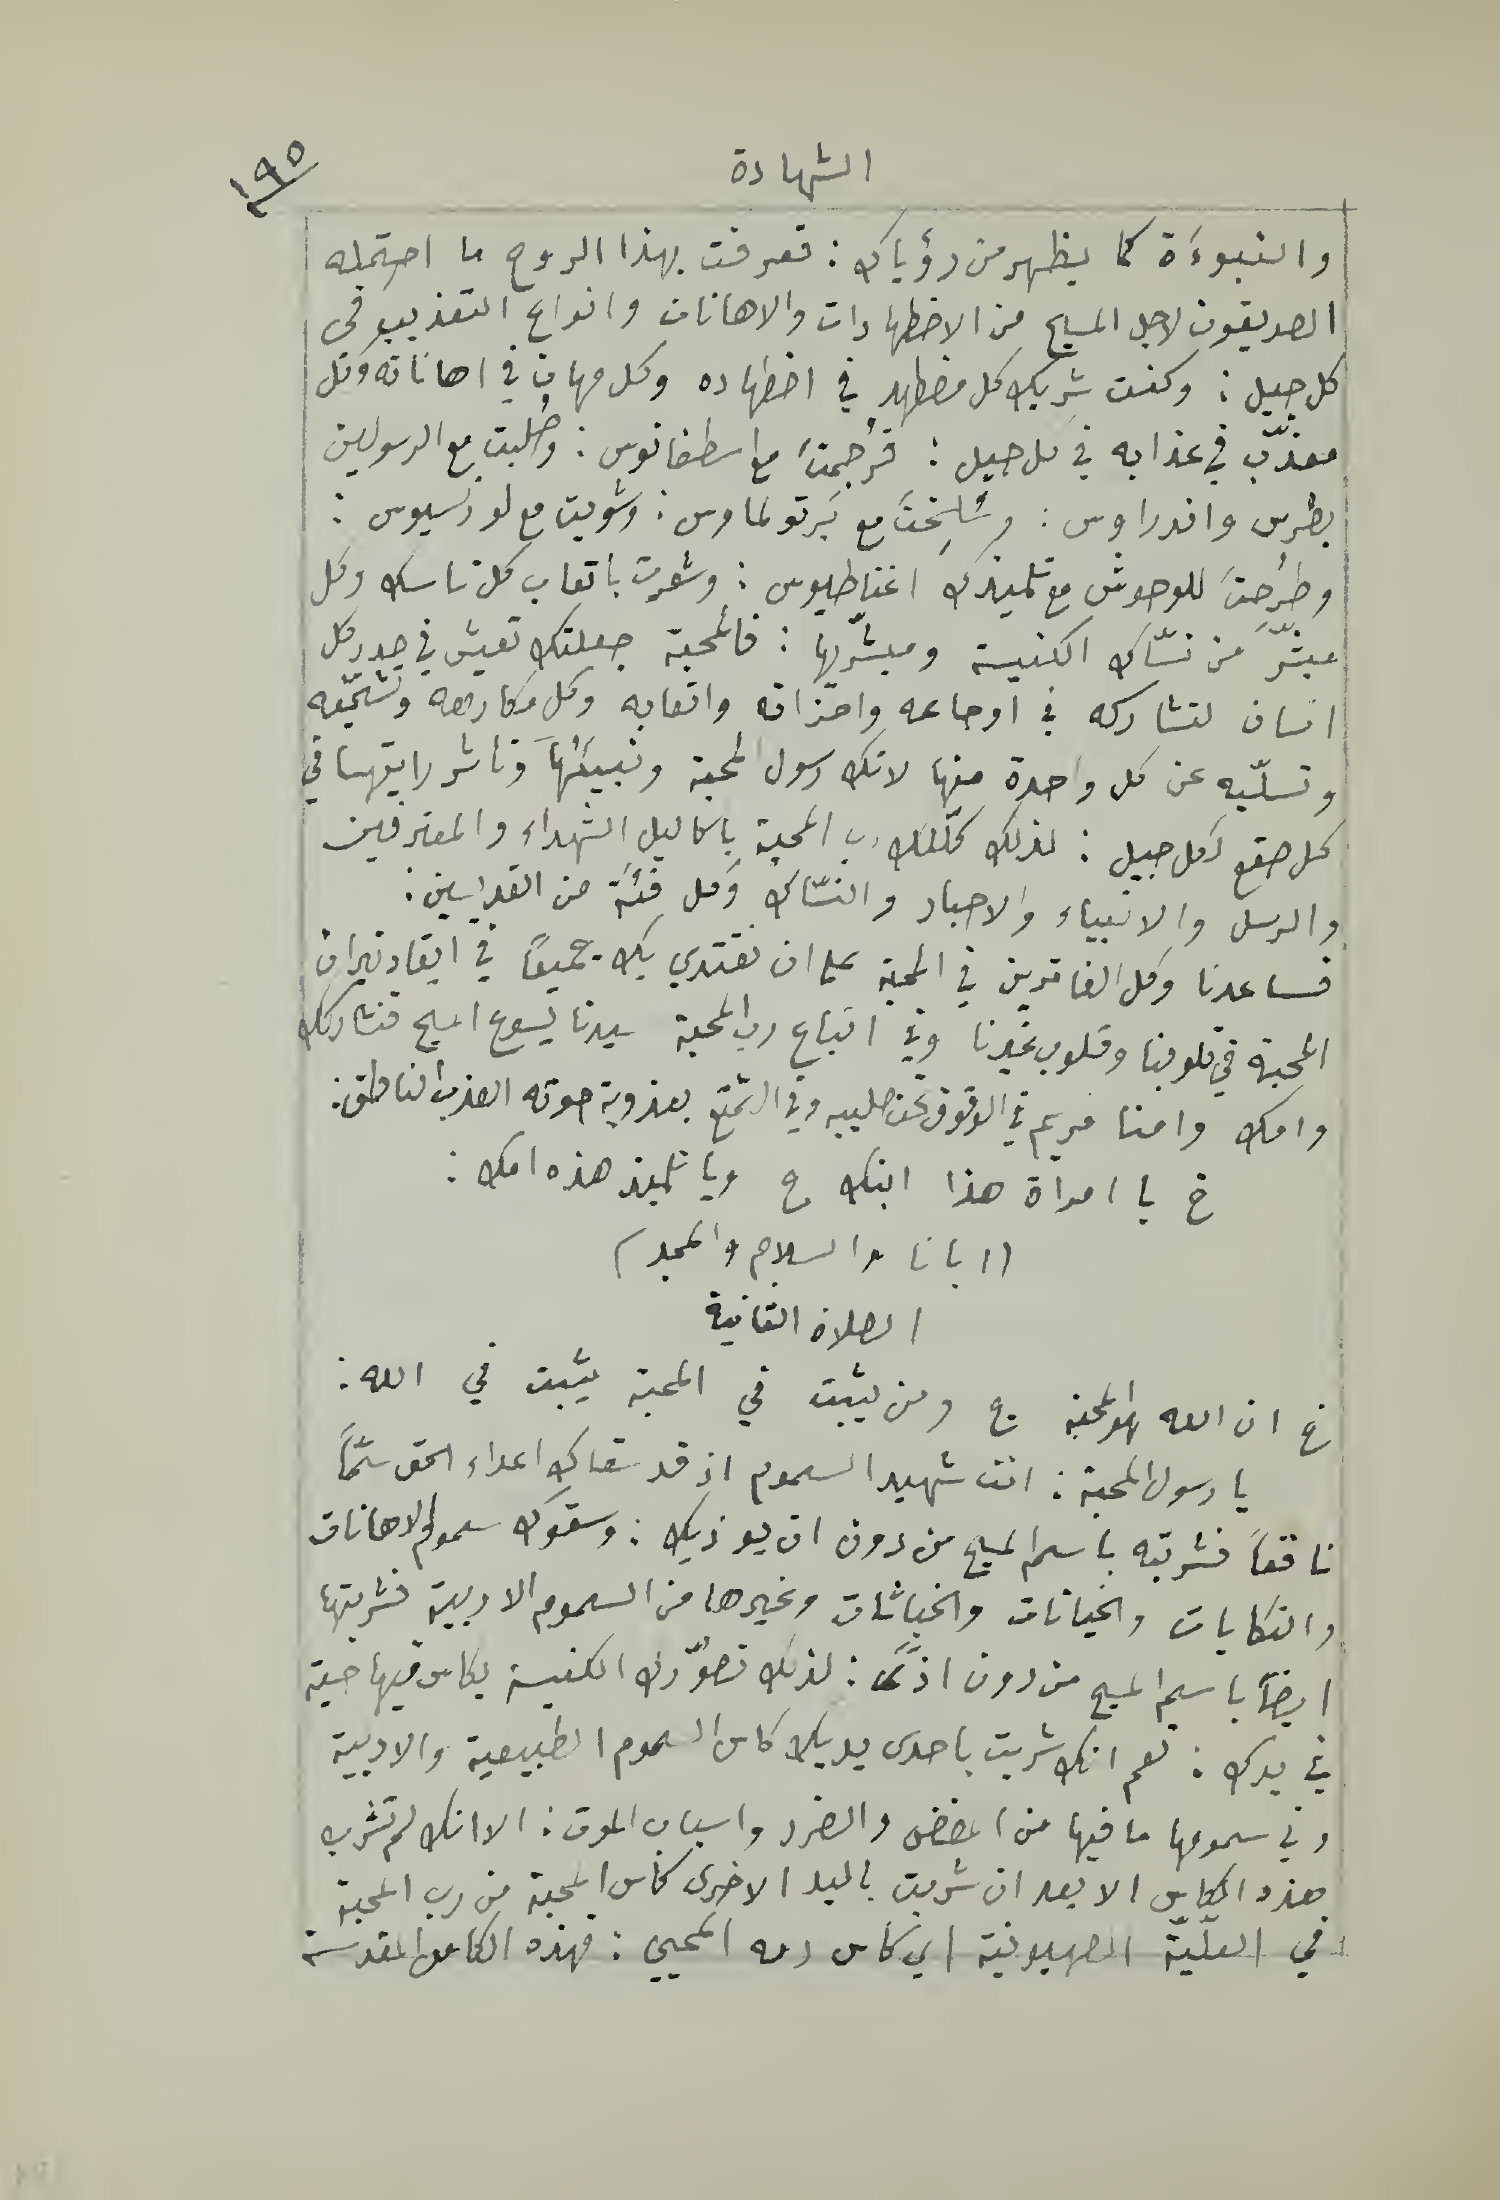 ١٩٥
الشهادة
والنبوءَة كما يظهر من رؤياك : فعرفت بهذا الروح ما احتمله
الصديقون لاجل المسيح من الاضطهادات والاهانات وانواع التعذيب في
كل جيل : وكنت شريك كل مضطهد في اضطهاده وكل مهان في اهاناته وكل
معذّب في عذابه في كل جيل : فرُجِمتَ مع اسطفانوس : وصُلبت مع الرسولين
بطرس واندراوس : وسُلِختَ مع بَرتولماوس : وشُويت مع لورنسيوس :
وطُرِحتَ للوحوش مع تلميذك اغناطيوس : وشعرت باتعاب كل ناسك وكل
مبشّر من نسّاك الكنيسة ومبشّريها : فالمحبة جعلتك تعيش في صدر كل
انسان لتشاركه في اوجاعه واحزانه واتعابه وكل مكارهه وتشجّعه
وتسلّيه عن كل واحدة منها لانك رسول المحبة ونبيئها وناشر رايتها في
كل صقع وكل جيل : لذلك كلّلك رب المحبة باكاليل الشهداء والمعترفين
والرسل والانبياء والاحبار والنسّاك وكل فئَة من القديسين :
فساعدنا وكل الفاترين في المحبة على ان نقتدي بك جميعًا في ايقاد نيران
المحبة في قلوبنا وقلوب غيرنا وفي اتباع رب المحبة سيدنا يسوع المسيح فنشاركك
وامك وامنا مريم في الوقوف تحت صليبه وفي التمتع بعذوبة صوته العذب الناطق :
خ يا امراة هذا ابنك ج ويا تلميذ هذه امك :
(ابانا والسلام والمجد)
الصلاة الثانية
خ ان الله هو المحبة ج ومن يثبت في المحبة يثبت في الله :
يا رسول المحبة : انت شهيد السموم اذ قد سقاك اعداء الحق سمّاً
ناقعاً فشربته باسم المسيح من دون ان يوذيك : وسقوك سموم الاهانات
والنكايات والخيانات والخباثات وغيرها من السموم الادبية فشربتها
ايضاً باسم المسيح من دون اذًى : لذلك تصوّرك الكنيسة بكاس فيها حية
في يدك : نعم انك شربت باحدى يديك كاس السموم الطبيعية والادبية
وفي سمومها ما فيها من المضض والضرر واسباب الموت : الا انك لم تشرب
هذه الكاس الا بعد ان شربت باليد الاخرى كاس المحبة من رب المحبة
في العلّيّة الصهيونية اي كاس دمه المحيي : فهذه الكاس المقدسة